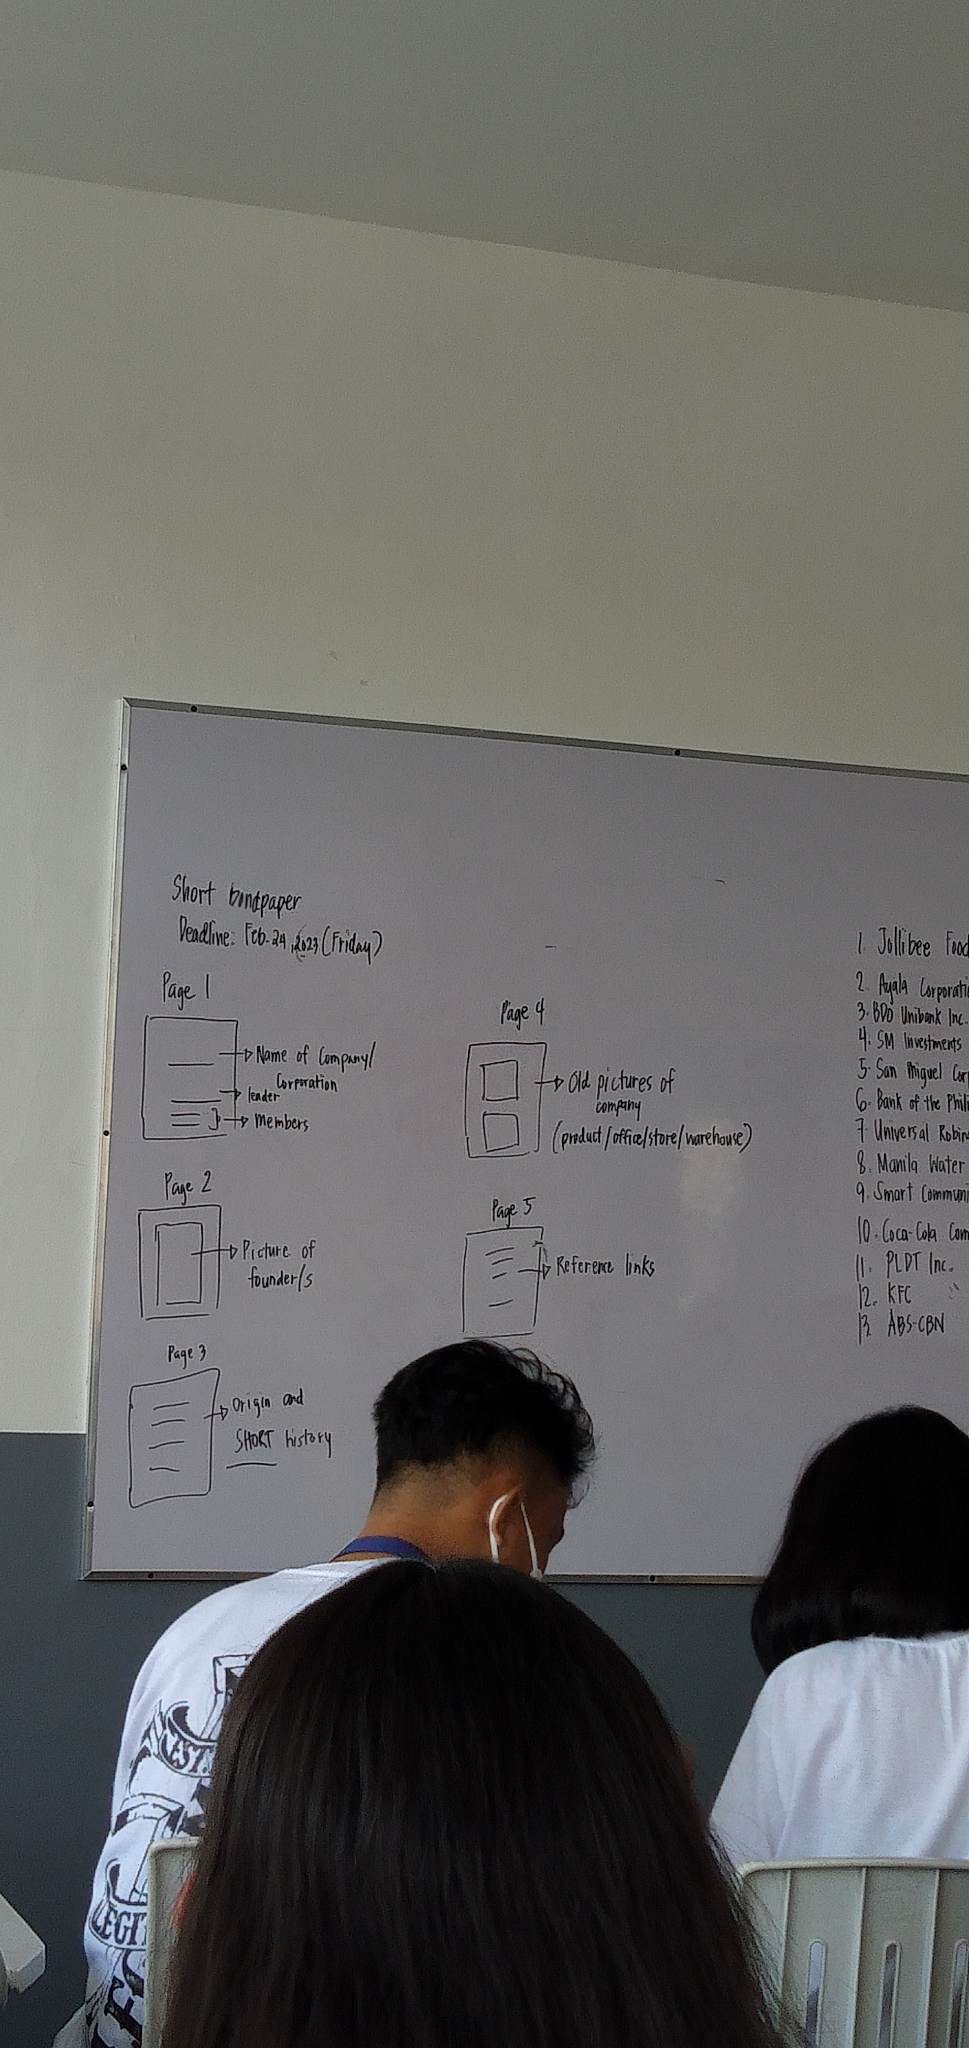 Short bondpaper
Deadline: Feb. 24, 2023 (Friday)
Page 1
Name of Company/
Corporation
leader
Members
Page 2
Picture of
founder/s
Page 3
Origin and
SHORT history
Page 4
Old pictures of
company
(product/office/store/warehouse)
Page 5
Reference links
1. Jollibee Food
2. Ayala Corporati
3. BDO Unibank Inc.
4. SM Investments
5. San Miguel Cor
6. Bank of the Phili
7. Universal Robin
8. Manila Water
9. Smart Communi
10. Coca-Cola Com
11. PLDT Inc.
12. KFC
13. ABS-CBN
EST.
LEGI